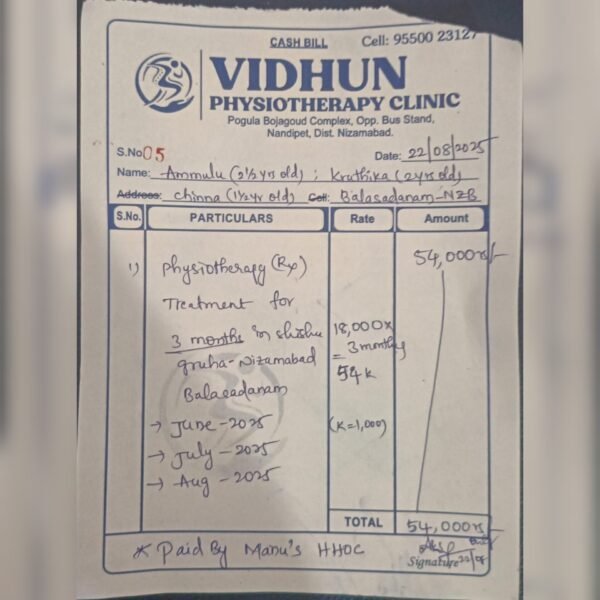 CASH BILL
Cell: 95500 23127
VIDHUN
PHYSIOTHERAPY CLINIC
Pogula Bojagoud Complex, Opp. Bus Stand,
Nandipet, Dist. Nizamabad.
S.No 05
Date: 22/08/2025
Name: Ammulu (2½ yrs old) ; Kruthika (2 yrs old)
Address: chinna (1½ yr old) Cell: Balasadanam-NZB
S.No. PARTICULARS Rate Amount
1) Physiotherapy (Rx) 54,000rs/-
Treatment for
3 months in shishu 18,000x
gruha-Nizamabad = 3 months
Balasadanam 54k
→ June-2025 (K=1,000)
→ July-2025
→ Aug-2025
TOTAL 54,000rs/-
* Paid By Manu's HHOC
Signature